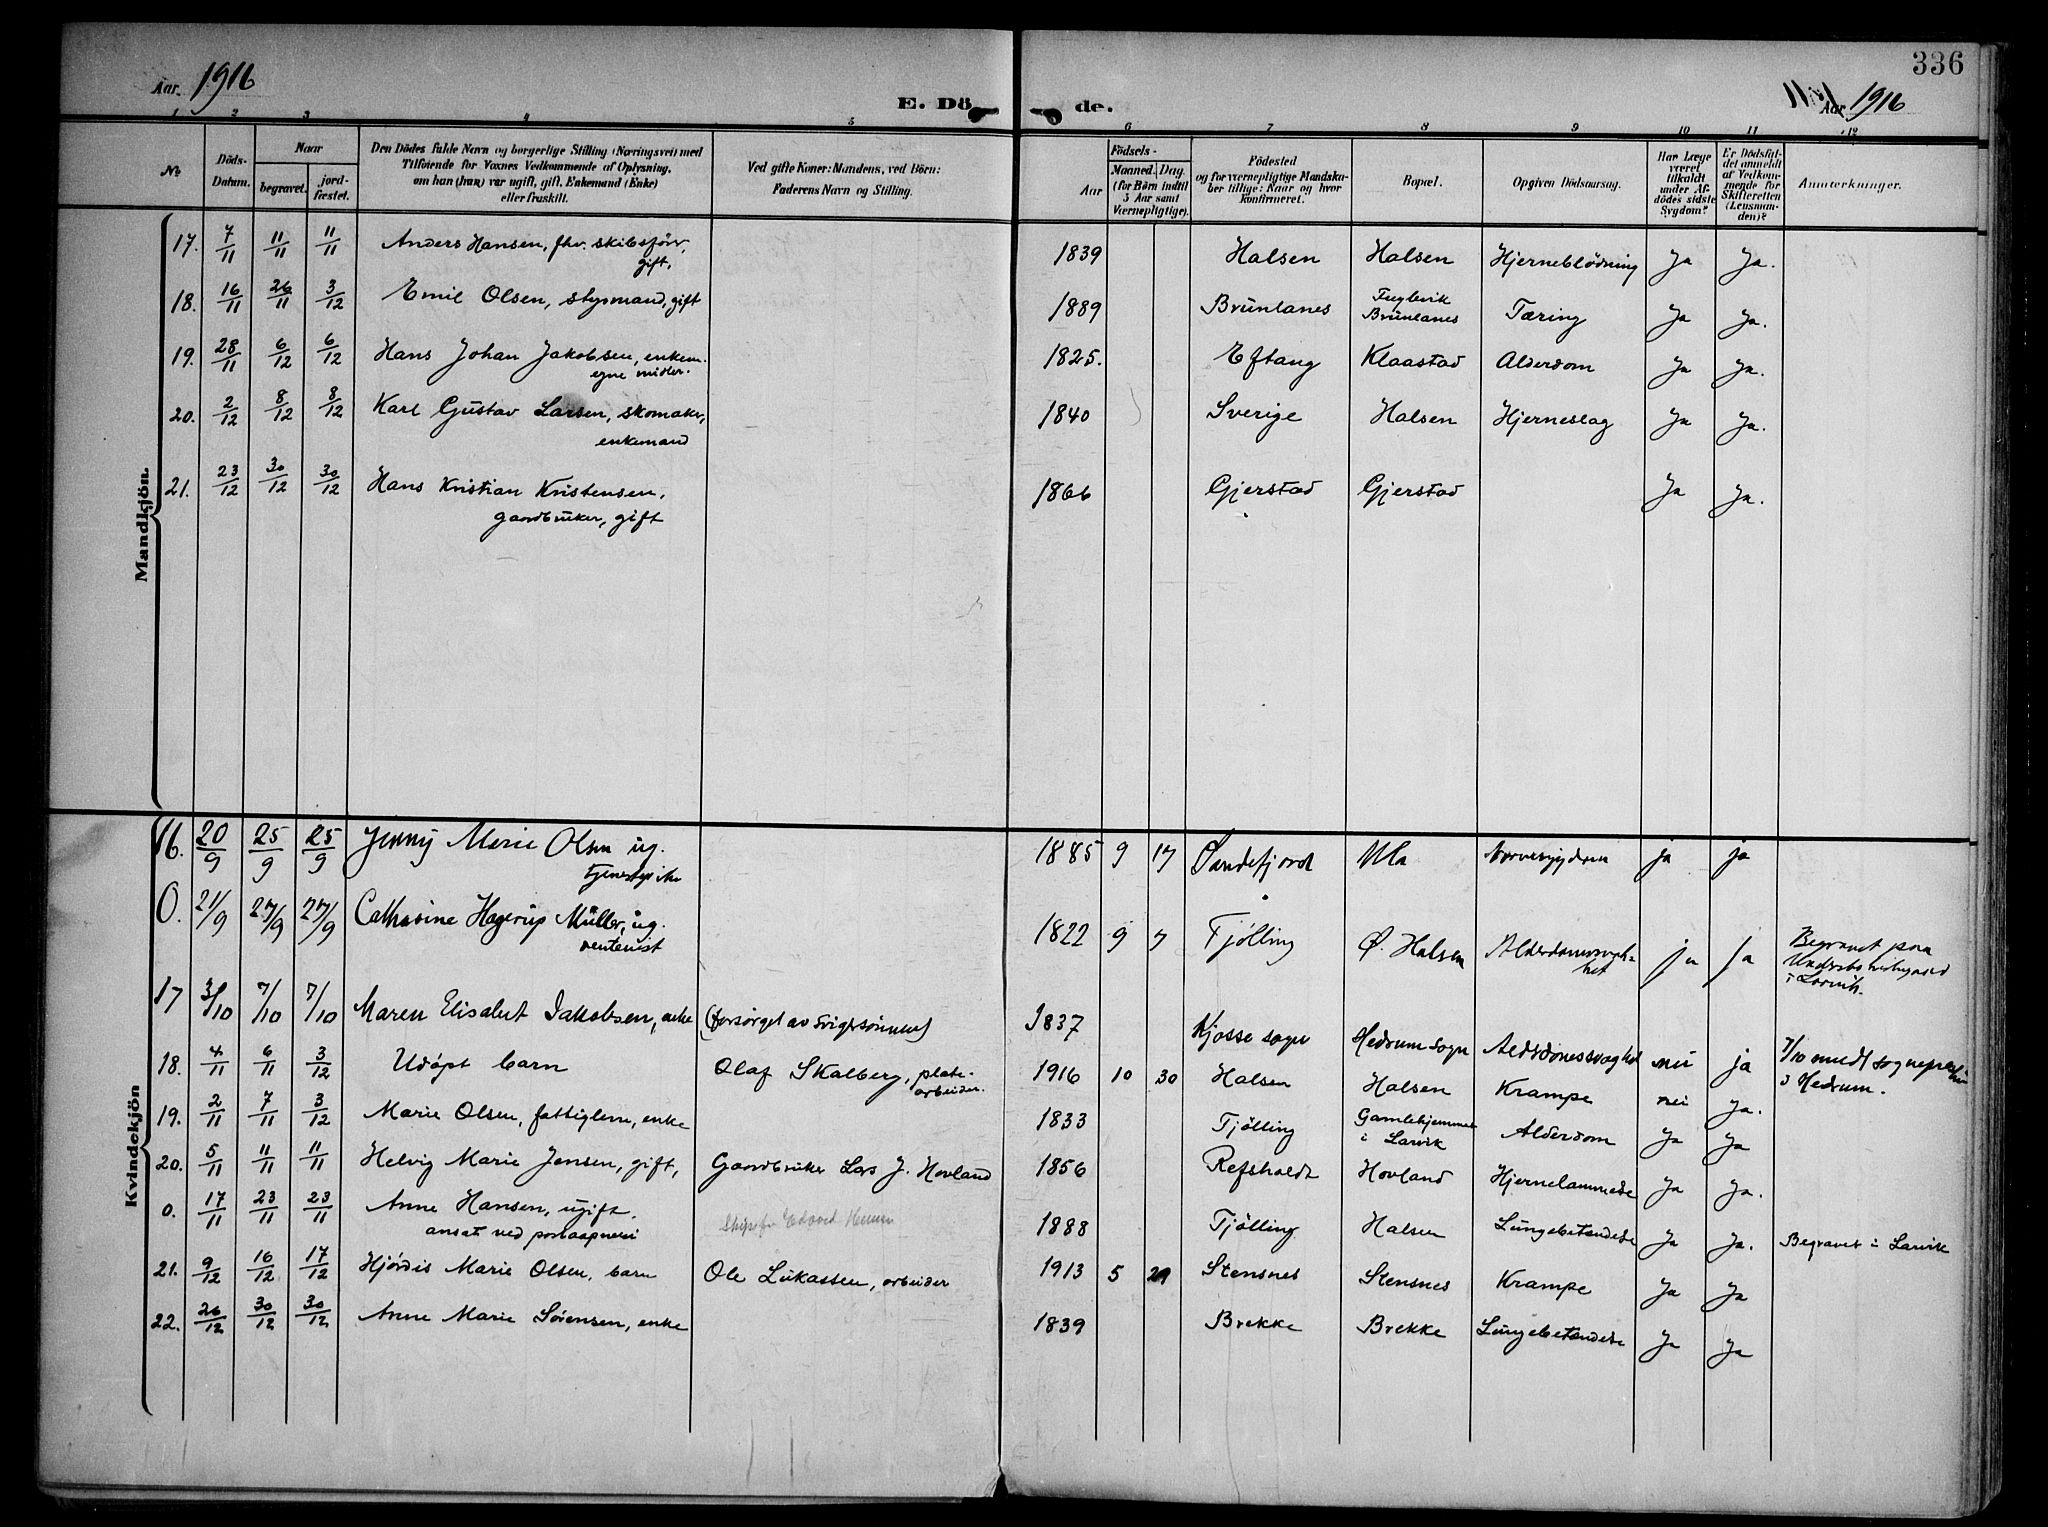 336
Aar 1916
E. Dö
de.
Aar 1916
1 2 3 4 5 6 7 8 9 10 11 12
No
Döds-
Datum.
Naar
begravet.
jord-
fæstet.
Den Dödes fulde Navn og borgerlige Stilling (Næringsvei) med
Tilföiende for Voxnes Vedkommende af Oplysning,
om han (hun) var ugift, gift, Enkemand (Enke)
eller fraskilt.
Ved gifte Koner: Mandens, ved Börn:
Faderens Navn og Stilling.
Födsels-
Aar
Maaned.
Dag.
(for Börn indtil
5 Aar samt
Værnepligtige).
Födested
og for værnepligtige Mandska-
ber tillige: Naar og hvor
konfirmeret.
Bopæl.
Opgiven Dödsaarsag.
Har Læge
været
tilkaldt
under Af-
dödes sidste
Sygdom?
Er Dödsfal-
det anmeldt
af Vedkom-
mende for
Skifteretten
(Lensman-
den)?
Anmærkninger.
Mandkjön.
17. 7/11 11/11 11/11 Anders Hansen, fhv. skibsförer, 1839 Halsen Halsen Hjerneblödning Ja Ja.
gift,
18. 16/11 26/11 3/12 Emil Olsen, styrmand, gift 1889 Brunlanes Fuglevik Tæring Ja Ja.
Brunlanes
19. 28/11 6/12 6/12 Hans Johan Jakobsen, enkem. 1825. Eftang Klaastad Alderdom Ja Ja.
egne midler.
20. 2/12 8/12 8/12 Karl Gustav Larsen, skomaker, 1840 Sverige Halsen Hjerneslag Ja Ja.
enkemand
21. 23/12 30/12 30/12 Hans Kristian Kristensen, 1866 Gjerstad Gjerstad Ja Ja.
gaardbruker, gift
Kvindekjön
16. 20/9 25/9 25/9 Jenny Marie Olsen ug. 1885 9 17 Sandefjord Ula ja ja
tjenestepike
0. 21/9 27/9 27/9 Catharine Hagerup Müller, ug. 1822 9 7 Tjølling Ø. Halsen ja ja Begravet paa
rentenist
i Larvik.
17 3/10 7/10 7/10 Maren Elisabet Jakobsen, enke (forsørget av svigersønnen) 1837 Kjosse sogn Hedrum sogn nei ja 7/10
i Hedrum.
18. 4/11 6/11 3/12 Udöpt barn Olaf Skalberg, plate- 1916 10 30 Halsen Halsen Krampe nei Ja.
arbeider.
19. 2/11 7/11 3/12 Marie Olsen, fattiglem, enke 1833 Tjölling Gamlehjemmet Alderdom Ja Ja
i Larvik
20. 5/11 11/11 11/11 Helvig Marie Jensen, gift, Gaardbruker Lars J. Hovland 1856 Refsholdt Hovland Hjernelammelse Ja Ja.
0. 17/11 23/11 23/11 Anne Hansen, ugift. 1888 Tjölling Halsen Lungebetændelse Ja Ja. Begravet i Larvik
ansat ved postaapneri
21. 9/12 16/12 17/12 Hjördis Marie Olsen, barn Ole Lukassen, arbeider 1913 5 29 Stensnes Stensnes Krampe Ja Ja
22. 26/12 30/12 30/12 Anne Marie Sörensen, enke 1839 Brekke Brekke Lungebetændelse Ja Ja